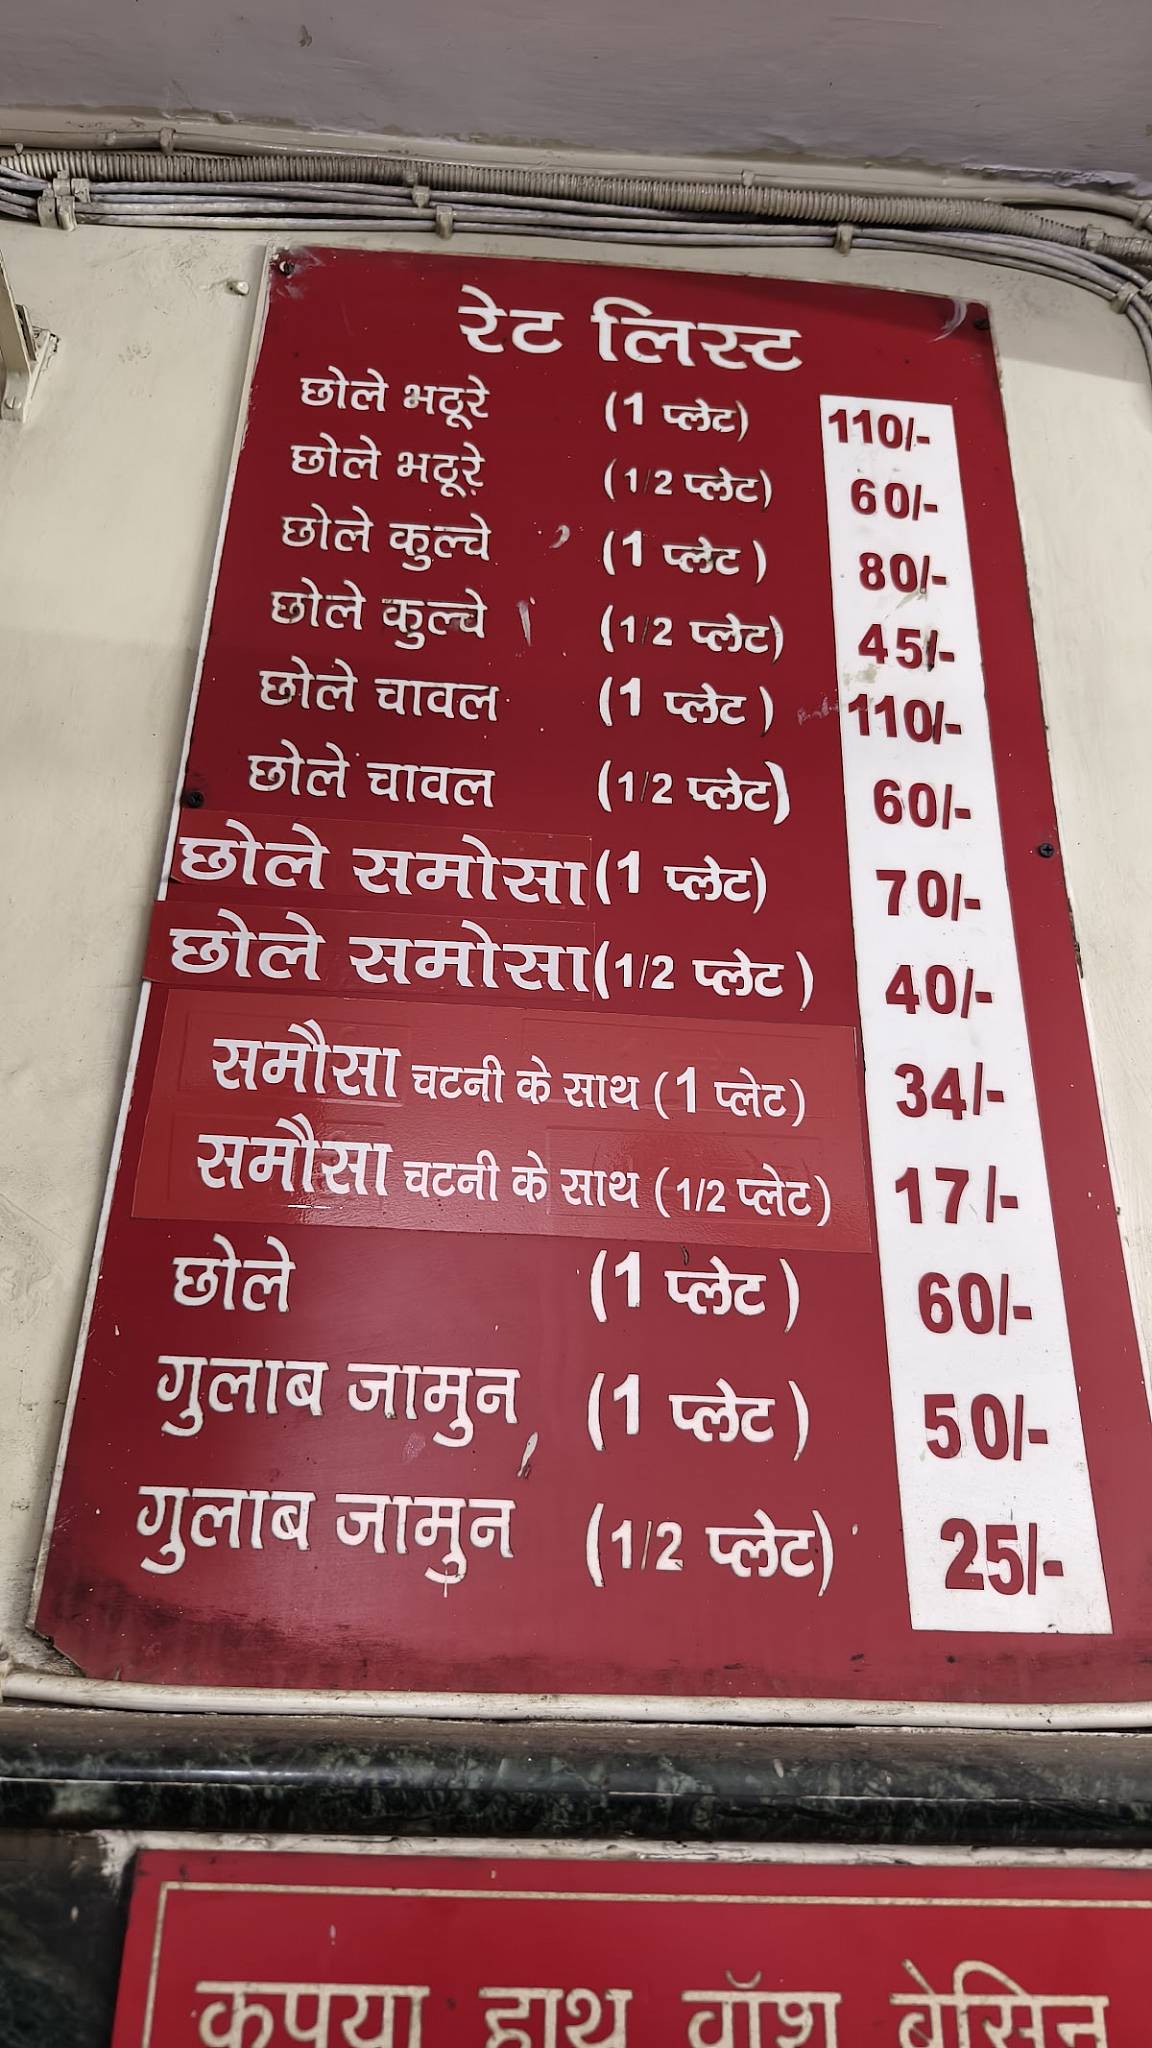 रेट लिस्ट
छोले भठूरे (1 प्लेट) 110/-
छोले भठूरे (1/2 प्लेट) 60/-
छोले कुल्चे (1 प्लेट ) 80/-
छोले कुल्चे (1/2 प्लेट) 45/-
छोले चावल (1 प्लेट ) 110/-
छोले चावल (1/2 प्लेट) 60/-
छोले समोसा (1 प्लेट) 70/-
छोले समोसा (1/2 प्लेट ) 40/-
समौसा चटनी के साथ (1 प्लेट) 34/-
समौसा चटनी के साथ (1/2 प्लेट) 17/-
छोले (1 प्लेट ) 60/-
गुलाब जामुन (1 प्लेट ) 50/-
गुलाब जामुन (1/2 प्लेट) 25/-
कृपया हाथ वॉश बेसिन